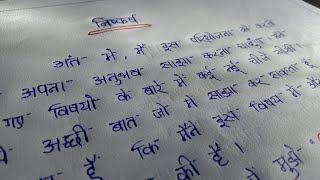 निष्कर्ष
अंत में, मैं इस परियोजना के
अपना अनुभव साझा करना चाहता
गए विषयों के बारे में कई नई चीजें
अच्छी बात जो मैं साझा कर सकता हूँ
हैं कि मैंने इस विषय में
की है। मुझे